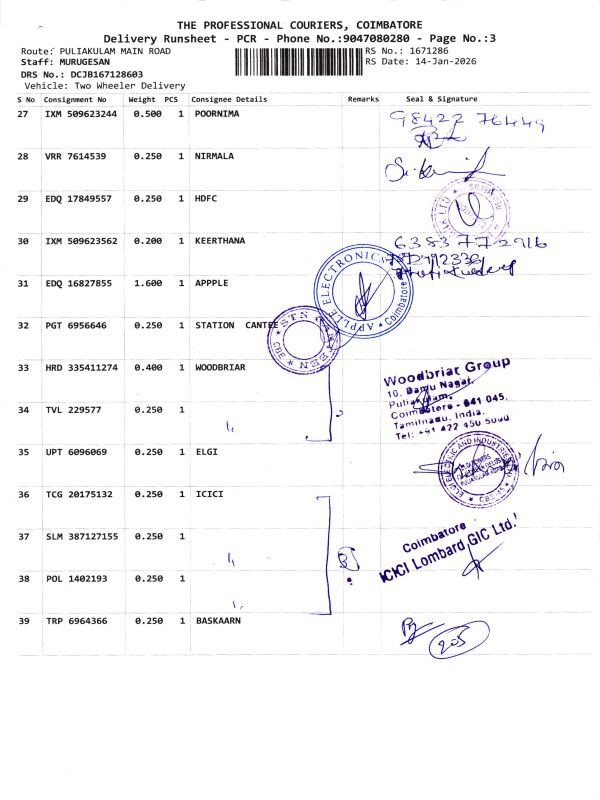 THE PROFESSIONAL COURIERS, COIMBATORE
Delivery Runsheet - PCR - Phone No.:9047080280 - Page No.:3
Route: PULIAKULAM MAIN ROAD
RS No.: 1671286
Staff: MURUGESAN
RS Date: 14-Jan-2026
DRS No.: DCJB167128603
Vehicle: Two Wheeler Delivery
S No Consignment No Weight PCS Consignee Details Remarks Seal & Signature
27 IXM 509623244 0.500 1 POORNIMA 98422 76449
28 VRR 7614539 0.250 1 NIRMALA
29 EDQ 17849557 0.250 1 HDFC
30 IXM 509623562 0.200 1 KEERTHANA 6383772916
31 EDQ 16827855 1.600 1 APPPLE
APPLE ELECTRONICS Coimbatore
32 PGT 6956646 0.250 1 STATION CANTEE
33 HRD 335411274 0.400 1 WOODBRIAR
Woodbriar Group
10, Damu Nagar,
Puliakulam,
Coimbatore - 641 045,
Tamilnadu, India.
Tel: +91 422 450 5000
34 TVL 229577 0.250 1 "
35 UPT 6096069 0.250 1 ELGI
36 TCG 20175132 0.250 1 ICICI
37 SLM 387127155 0.250 1 "
Coimbatore
ICICI Lombard GIC Ltd.
38 POL 1402193 0.250 1 "
39 TRP 6964366 0.250 1 BASKAARN
205